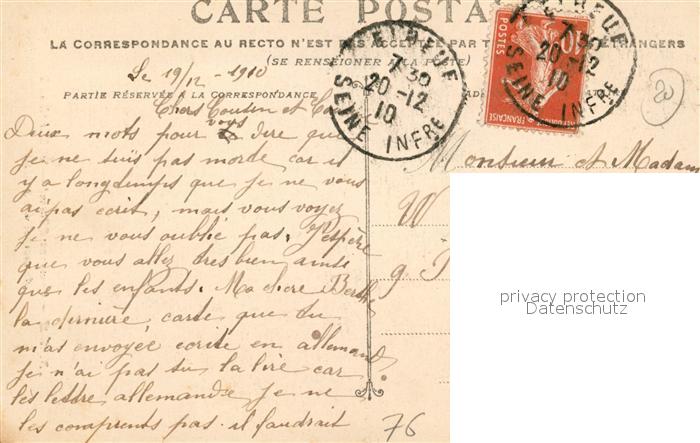 CARTE POSTA
LA CORRESPONDANCE AU RECTO N'EST PAS ACCEPTÉE PAR T ÉTRANGERS
(SE RENSEIGNER A LA POSTE)
Le 19/12 - 1910
PARTIE RÉSERVÉE A LA CORRESPONDANCE
Chers Cousin et
vous
Deux mots pour dire que
je ne suis pas morde car il
y a longdemps que je ne vous
ai pas ecrit, mais vous voyez
je ne vous oublie pas. J'espère
que vous allez tres bien ainsi
que les enfants. Ma chere Berth
la dernière carte que tu
m'as envoyée ecrite en allemand
je n'ai pas su la lire car
les lettre allemandse je ne
les comprents pas. il faudrait
EU
7 30
20-12
10
SEINE INFRE
EU
7
20-12
10
SEINE INFRE
10
POSTES
FRANÇAISE
20
Monsieur et Madam
W
9
privacy protection
Datenschutz
76